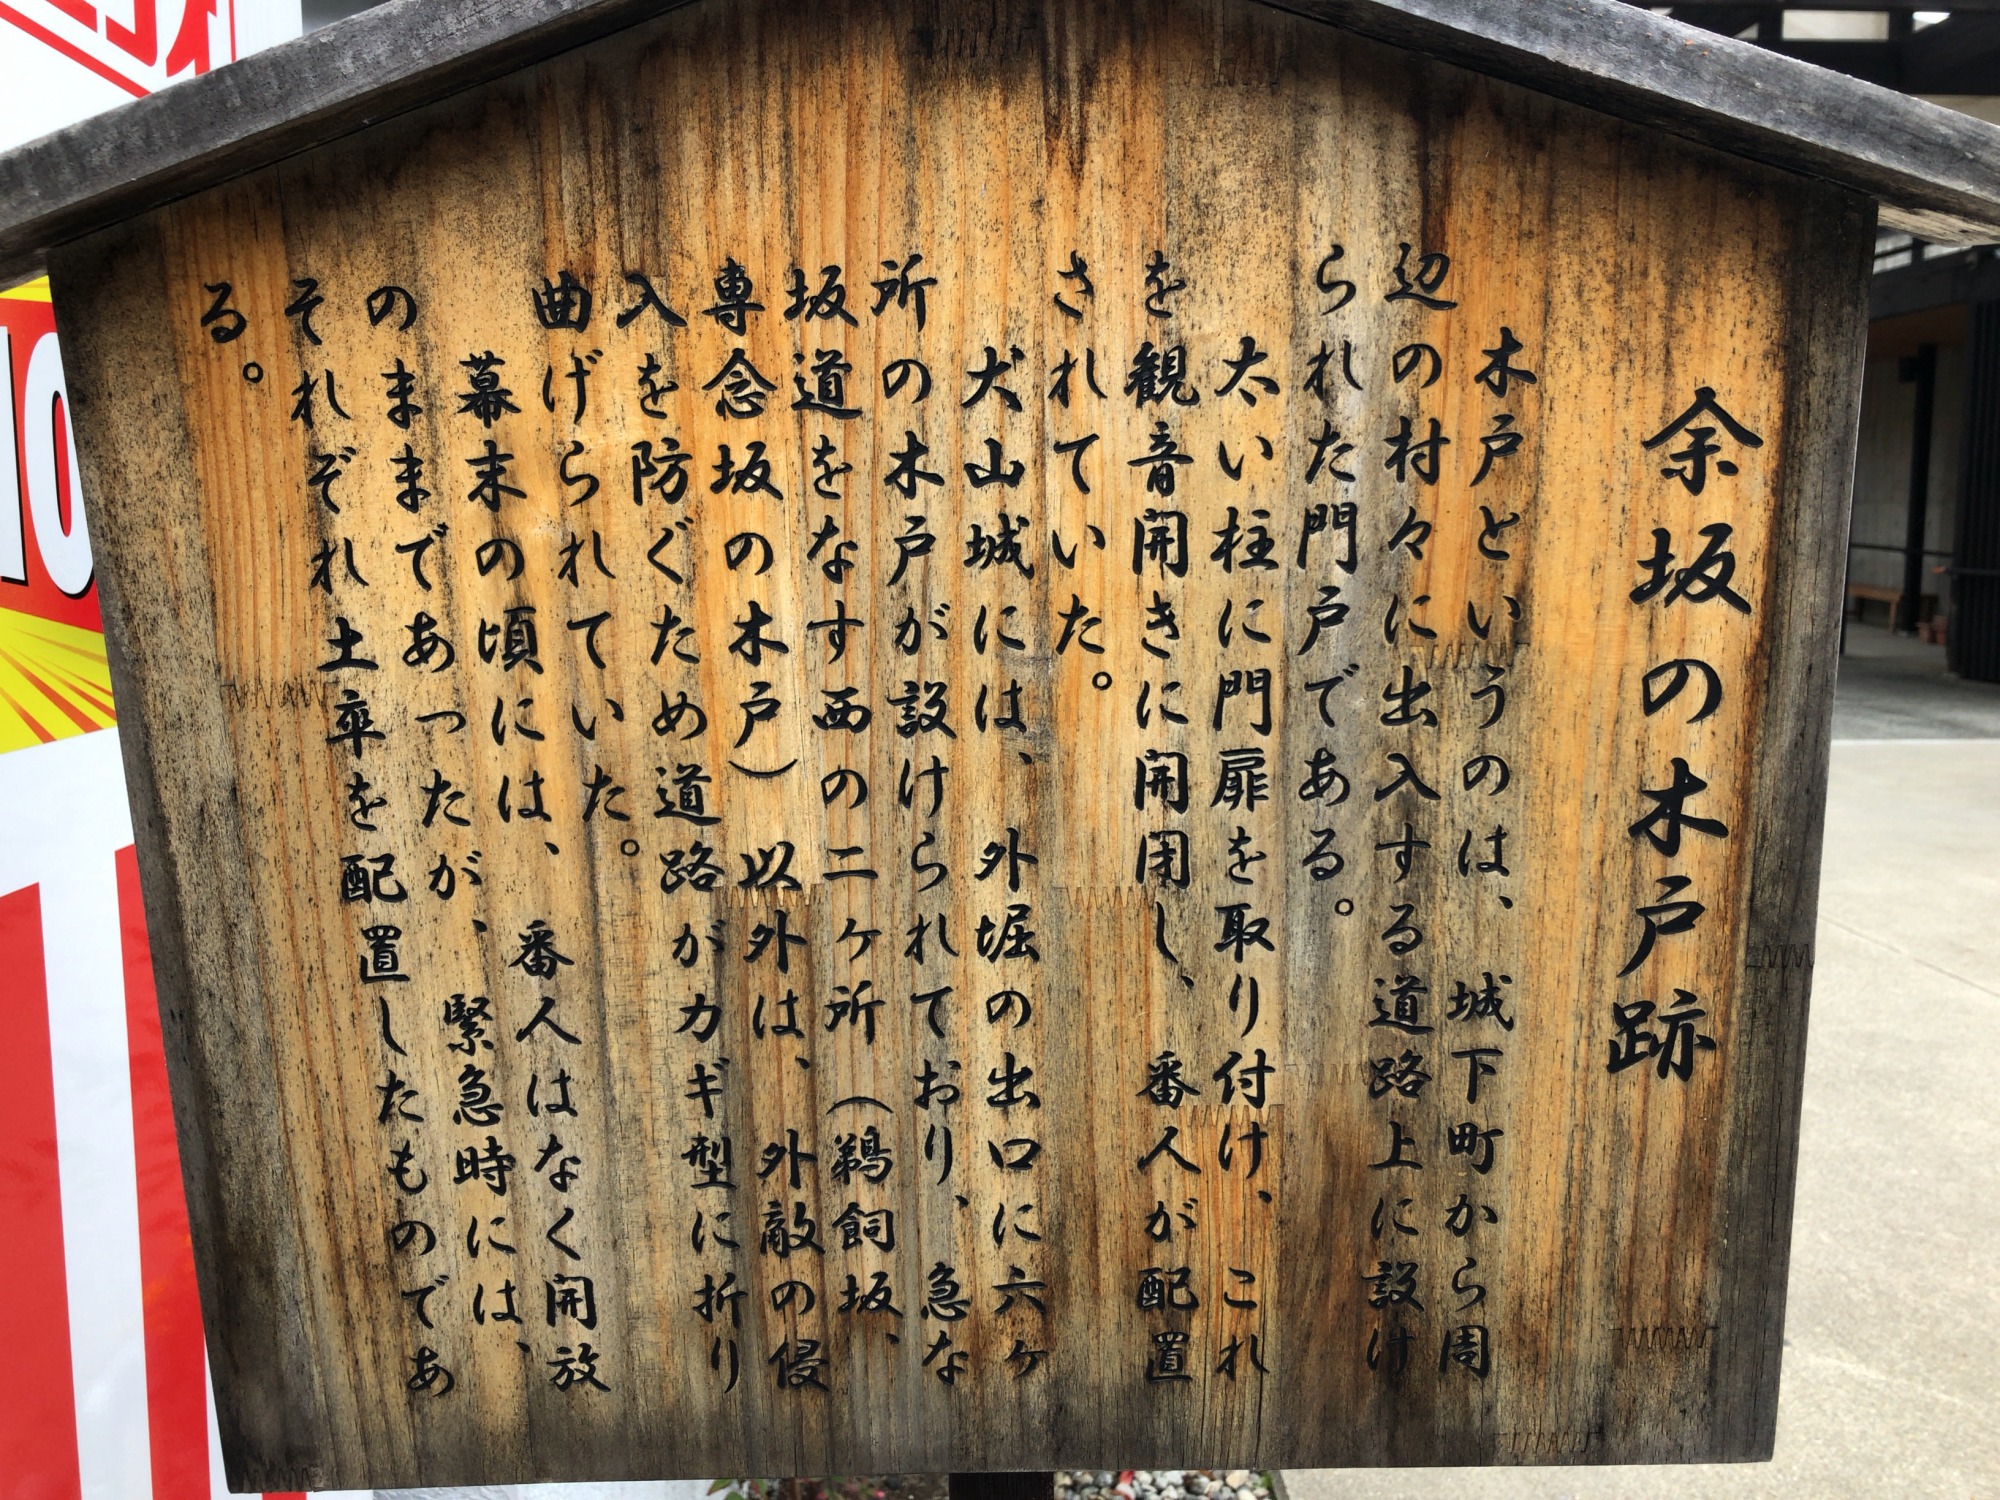 余坂の木戸跡
木戸というのは、城下町から周
辺の村々に出入する道路上に設け
られた門戸である。
太い柱に門扉を取り付け、これ
を観音開きに開閉し、番人が配置
されていた。
犬山城には、外堀の出口に六ヶ
所の木戸が設けられており、急な
坂道をなす西の二ヶ所(鵜飼坂、
専念坂の木戸)以外は、外敵の侵
入を防ぐため道路がカギ型に折り
曲げられていた。
幕末の頃には、番人はなく開放
のままであったが、緊急時には、
それぞれ土卒を配置したものであ
る。